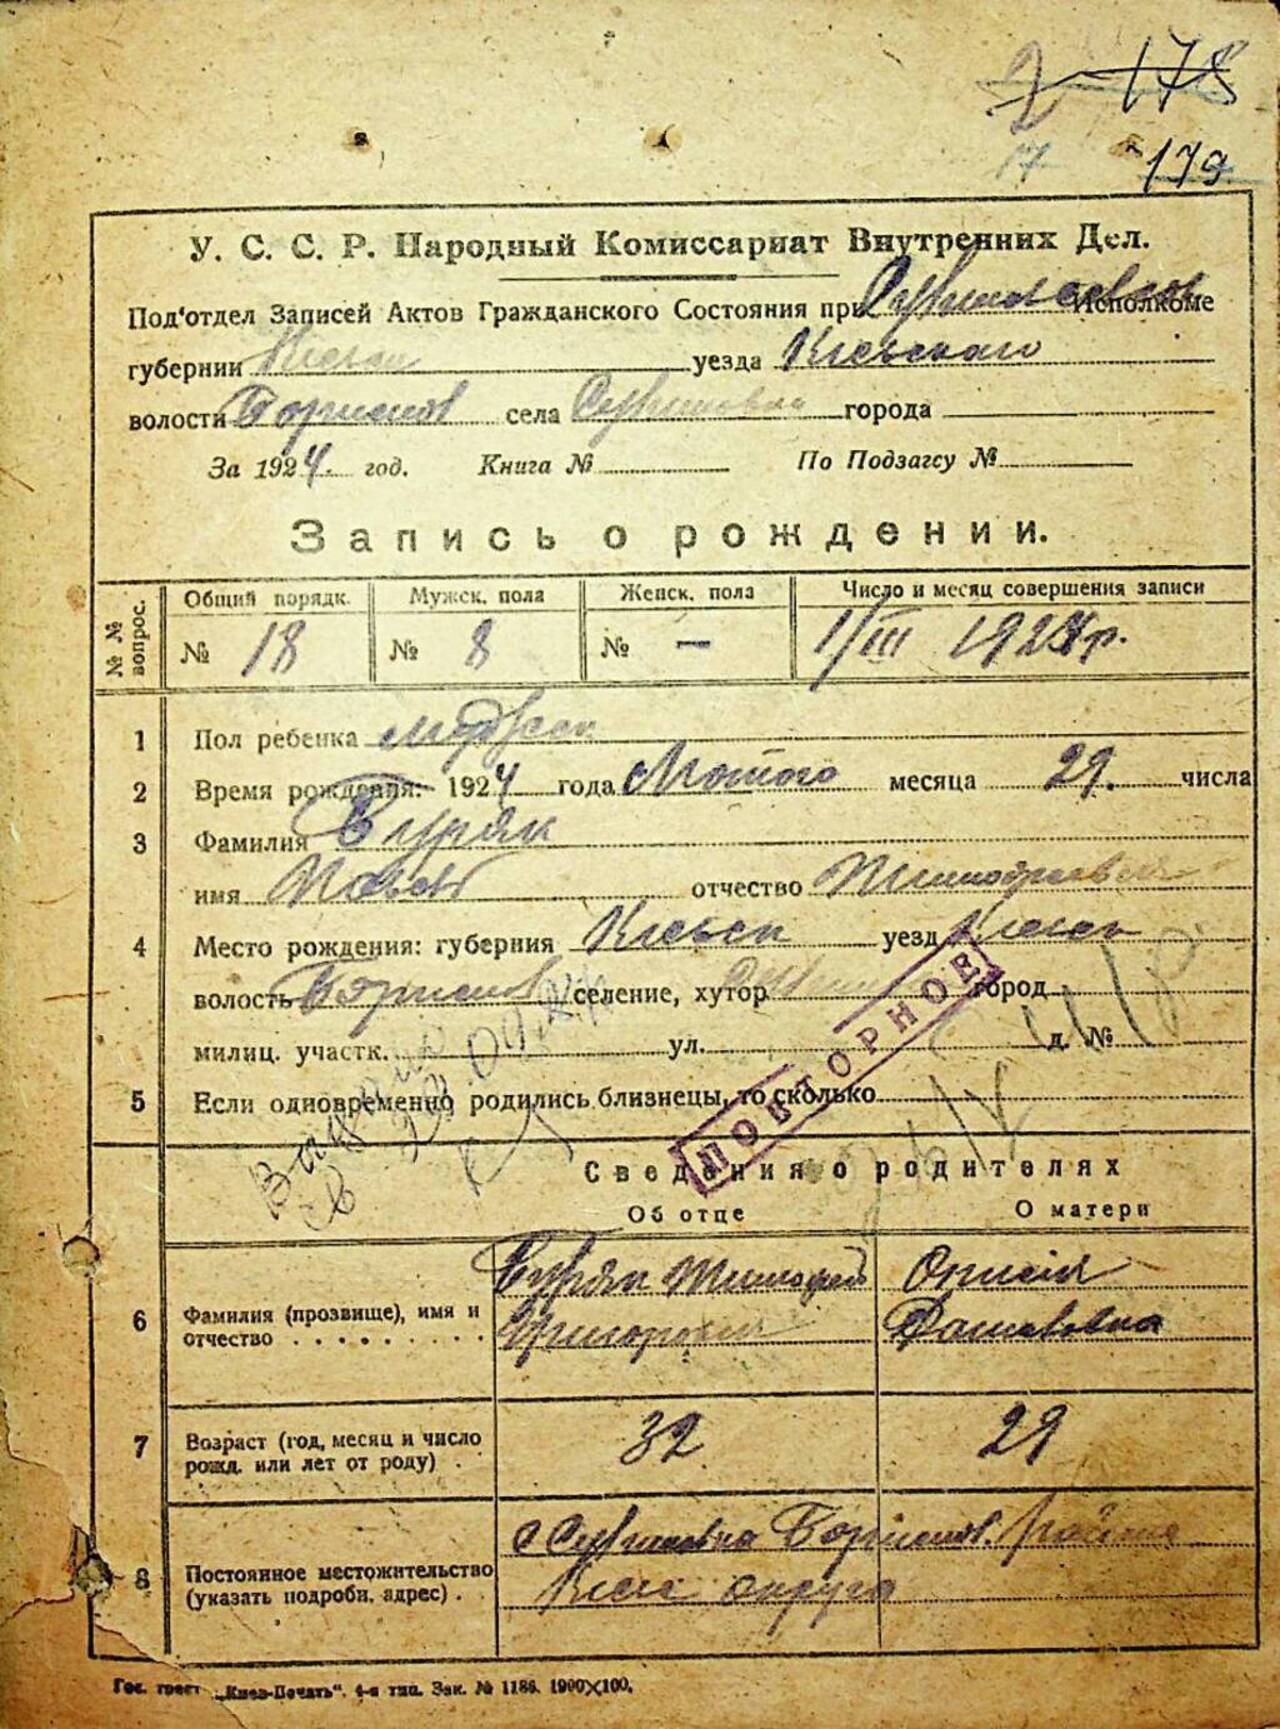 178
17 179
У. С. С. Р. Народный Комиссариат Внутренних Дел.
Под'отдел Записей Актов Гражданского Состояния при Исполкоме
губернии Киевск уезда Киевскаго
волости Бориспов села города
За 1924. год. Книга № По Подзагсу №
Запись о рождении.
№№ вопрос. Общий порядк. Мужск. пола Женск. пола Число и месяц совершения записи
№ 18 № 8 № — 1/III 1924 р.
1 Пол ребенка
2 Время рождения: 1924 года Лютого месяца 29. числа
3 Фамилия Буряк
имя отчество
4 Место рождения: губерния Киевск уезд Киевск
волость Борисполь селение, хутор город
милиц. участк. ул. д. №
ПОВТОРНОЕ
5 Если одновременно родились близнецы, то сколько
Сведения о родителях
Об отце О матери
6 Фамилия (прозвище), имя и отчество . . . . . . . . . Буряк Тимофей Онисія
7 Возраст (год, месяц и число рожд. или лет от роду) . 32 29
8 Постоянное местожительство (указать подробн. адрес) . с Борисполь. района
Киев округа
Гос. трест „Киев-Печать". 4-я тип. Зак. № 1186. 1900×100.